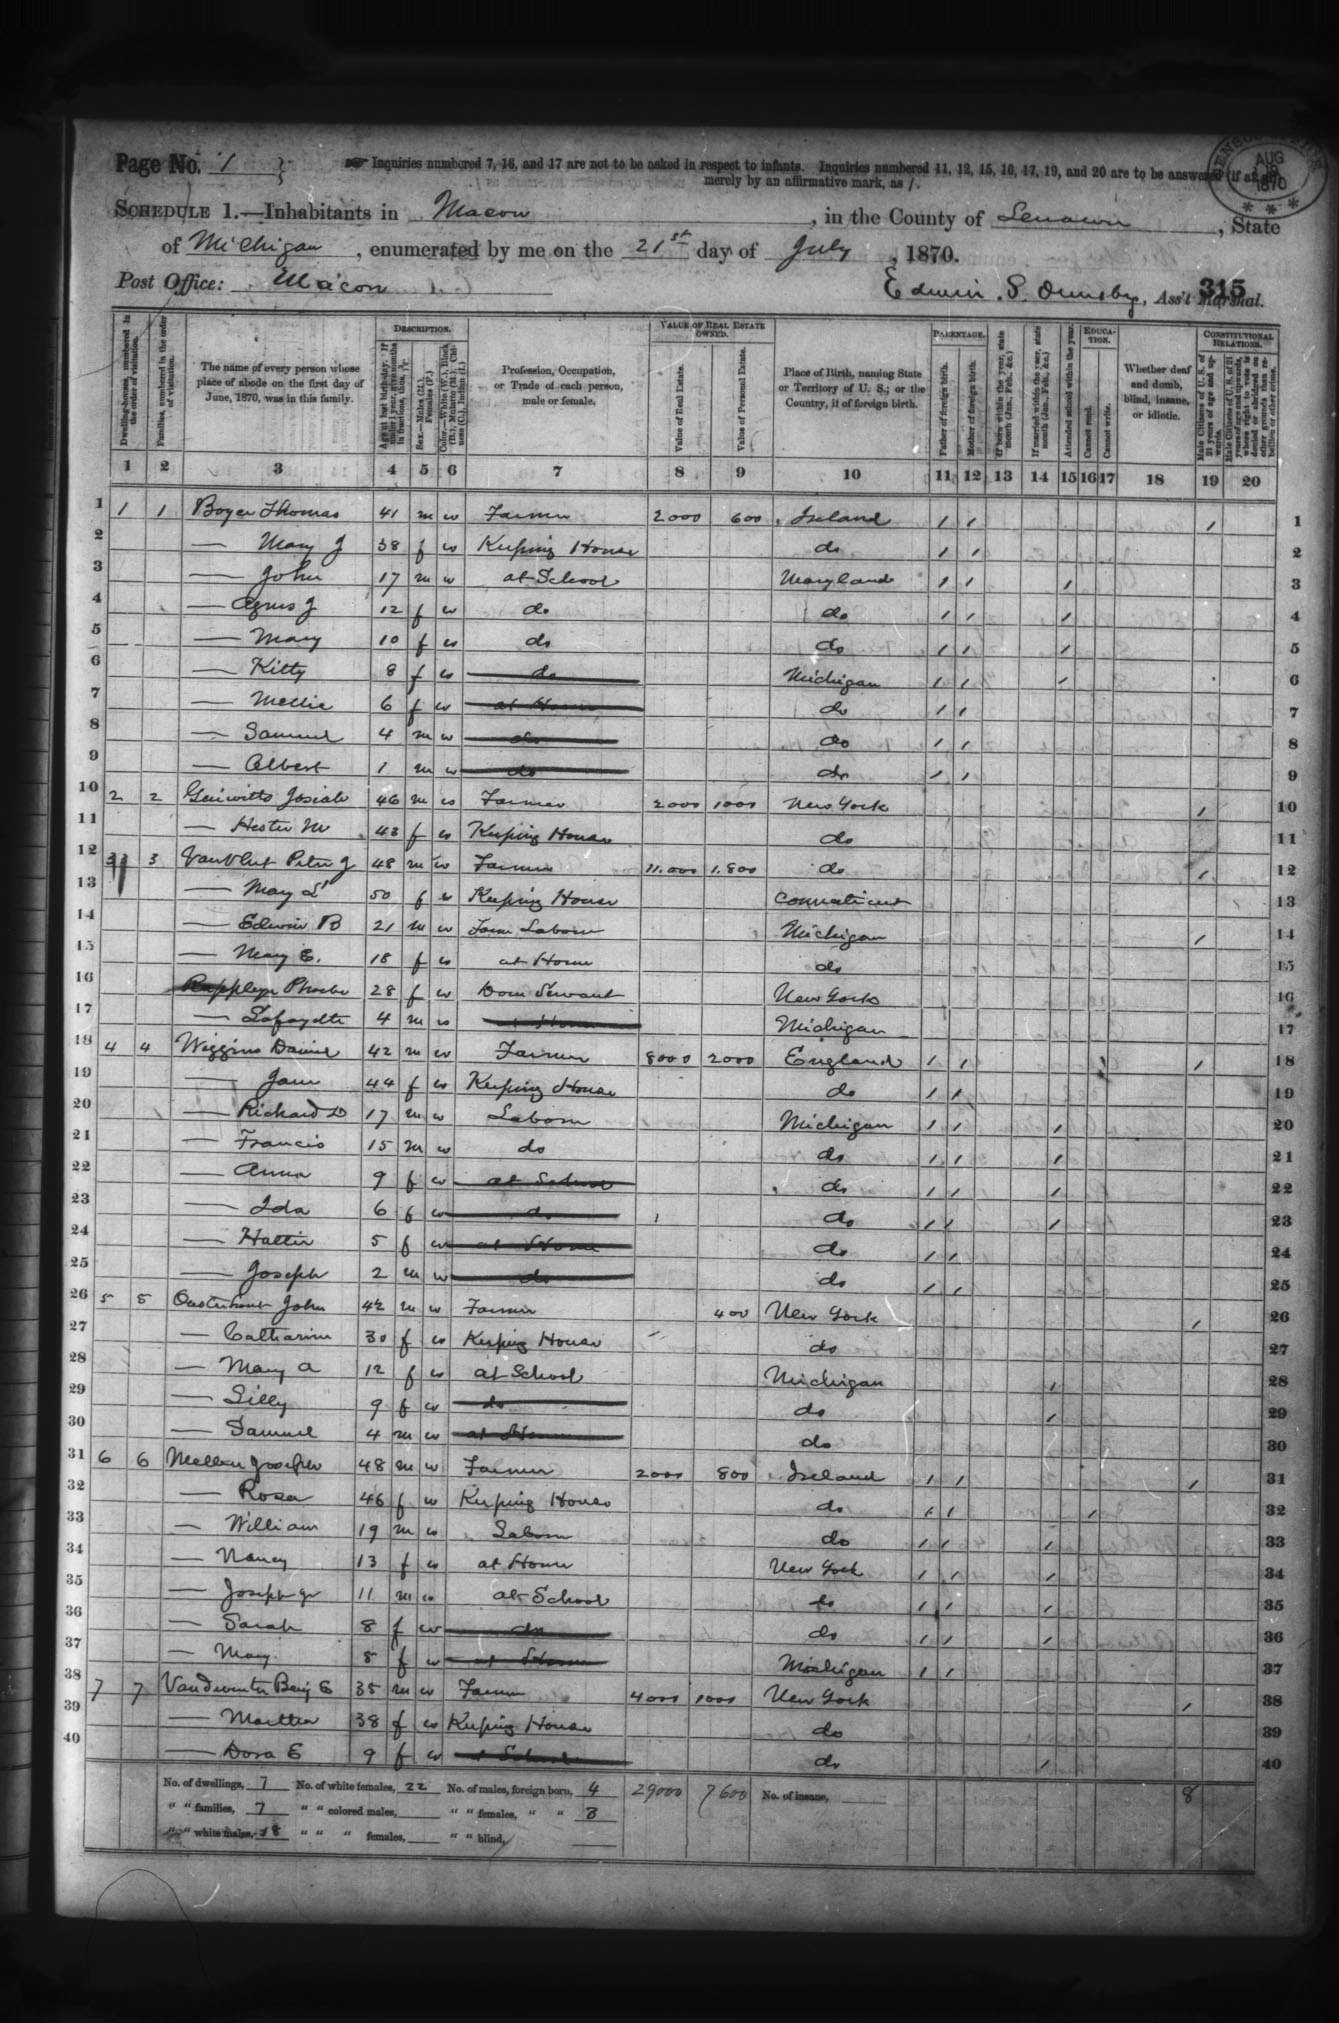 Page No. 1
Inquiries numbered 7, 16, and 17 are not to be asked in respect to infants. Inquiries numbered 11, 12, 15, 16, 17, 19, and 20 are to be answered (if at all)
merely by an affirmative mark, as /.
AUG 1870
SCHEDULE 1.—Inhabitants in Macon, in the County of Lenawee, State
of Michigan, enumerated by me on the 21st day of July, 1870.
Post Office: Macon
315
Edwin S. Ormsby, Ass't Marshal.
DESCRIPTION. VALUE OF REAL ESTATE OWNED. PARENTAGE. EDUCATION. CONSTITUTIONAL RELATIONS.
Dwelling-houses, numbered in the order of visitation. Families, numbered in the order of visitation. The name of every person whose place of abode on the first day of June, 1870, was in this family. Profession, Occupation, or Trade of each person, male or female. Value of Real Estate. Value of Personal Estate. Place of Birth, naming State or Territory of U. S.; or the Country, if of foreign birth. Father of foreign birth. Mother of foreign birth. Attended school within the year. Cannot read. Cannot write. Whether deaf and dumb, blind, insane, or idiotic.
1 2 3 4 5 6 7 8 9 10 11 12 13 14 15 16 17 18 19 20
1 1 1 Boyer Thomas 41 m w Farmer 2000 600 Ireland / / / 1
2 — Mary J 38 f w Keeping House do / / 2
3 — John 17 m w at School Maryland / / / 3
4 — Agnes J 12 f w do do / / / 4
5 — Mary 10 f w do do / / / 5
6 — Kitty 8 f w do Michigan / / / 6
7 — Mellie 6 f w at Home do / / 7
8 — Samuel 4 m w do do / / 8
9 — Albert 1 m w do do / / 9
10 2 2 Josiah 46 m w Farmer 2000 1000 New York / 10
11 — Hester M 43 f w Keeping House do 11
12 3 3 VanVleet Peter J 48 m w Farmer 11.000 1.800 do / 12
13 — Mary L 50 f w Keeping House Connecticut 13
14 — Edwin B 21 m w Farm Laborer Michigan / 14
15 — Mary E. 18 f w at Home do 15
16 Rappleye Phoebe 28 f w Dom Servant New York 16
17 — Lafayette 4 m w at Home Michigan 17
18 4 4 Wiggins Daniel 42 m w Farmer 8000 2000 England / / / 18
19 — Jane 44 f w Keeping House do / / 19
20 — Richard D 17 m w Laborer Michigan / / / 20
21 — Francis 15 m w do do / / / 21
22 — Anna 9 f w at School do / / / 22
23 — Ida 6 f w do do / / / 23
24 — Hattie 5 f w at Home do / / 24
25 — Joseph 2 m w do do / / 25
26 5 5 Oosterhout John 42 m w Farmer 400 New York / 26
27 — Catharine 30 f w Keeping House do 27
28 — Mary A 12 f w at School Michigan / 28
29 — Lilly 9 f w do do / 29
30 — Samuel 4 m w at Home do 30
31 6 6 Joseph 48 m w Farmer 2000 800 Ireland / / / 31
32 — Rosa 46 f w Keeping House do / / / 32
33 — William 19 m w Laborer do / / / 33
34 — Nancy 13 f w at Home New York / / / 34
35 — Joseph Jr 11 m w at School do / / / 35
36 — Sarah 8 f w do do / / / 36
37 — Mary 5 f w at Home Michigan / / 37
38 7 7 Vandeventer Benj E 35 m w Farmer 4000 1000 New York / 38
39 — Martha 38 f w Keeping House do 39
40 — Dora E 9 f w at School do / 40
No. of dwellings, 7 No. of white females, 22 No. of males, foreign born, 4 29000 7600 No. of insane, 8
" " families, 7 " " colored males, " " females, " " 3
" " white males, 18 " " " females, " " blind,